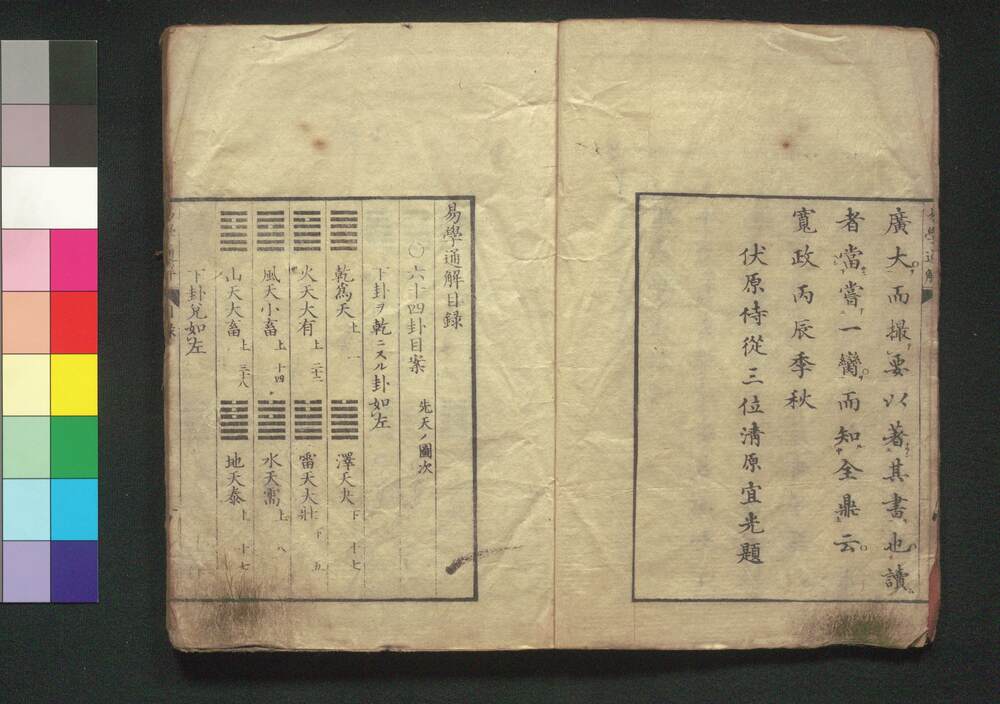 廣大而撮要以著其書也讀
者當嘗一臠而知全鼎云
寛政丙辰季秋
伏原侍從三位淸原宜光題
易學通解目録
○六十四卦目案 先天ノ圖次
下卦ヲ乾ニスル卦如左
乾爲天 上 一
澤天夬 下 十七
火天大有 上 二十二
雷天大壯 下 五
風天小畜 上 十四
水天需 上 八
山天大畜 上 三十八
地天泰 上 十七
下卦兌如左